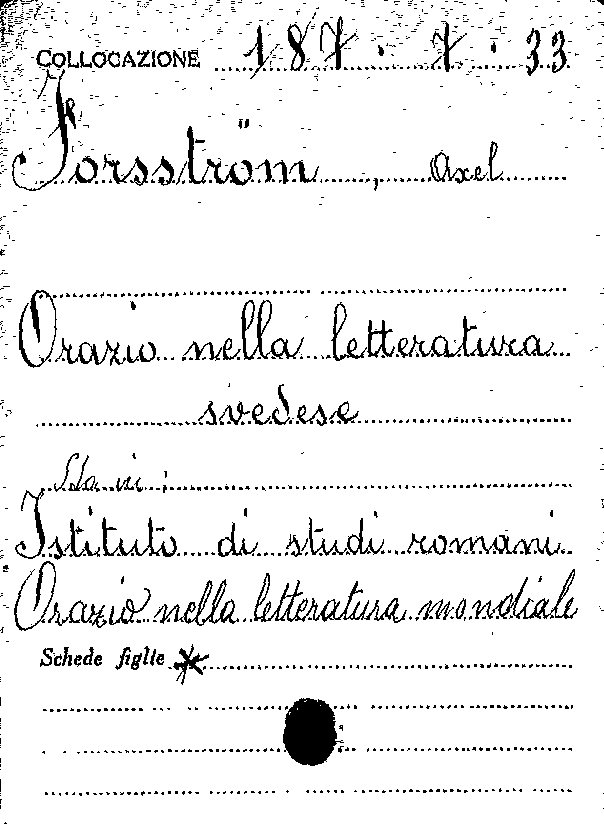 COLLOCAZIONE 187. 7. 33
Forsström, Axel
Orazio nella letteratura
svedese
Sta in:
Istituto di studi romani
Orazio nella letteratura mondiale
Schede figlie *